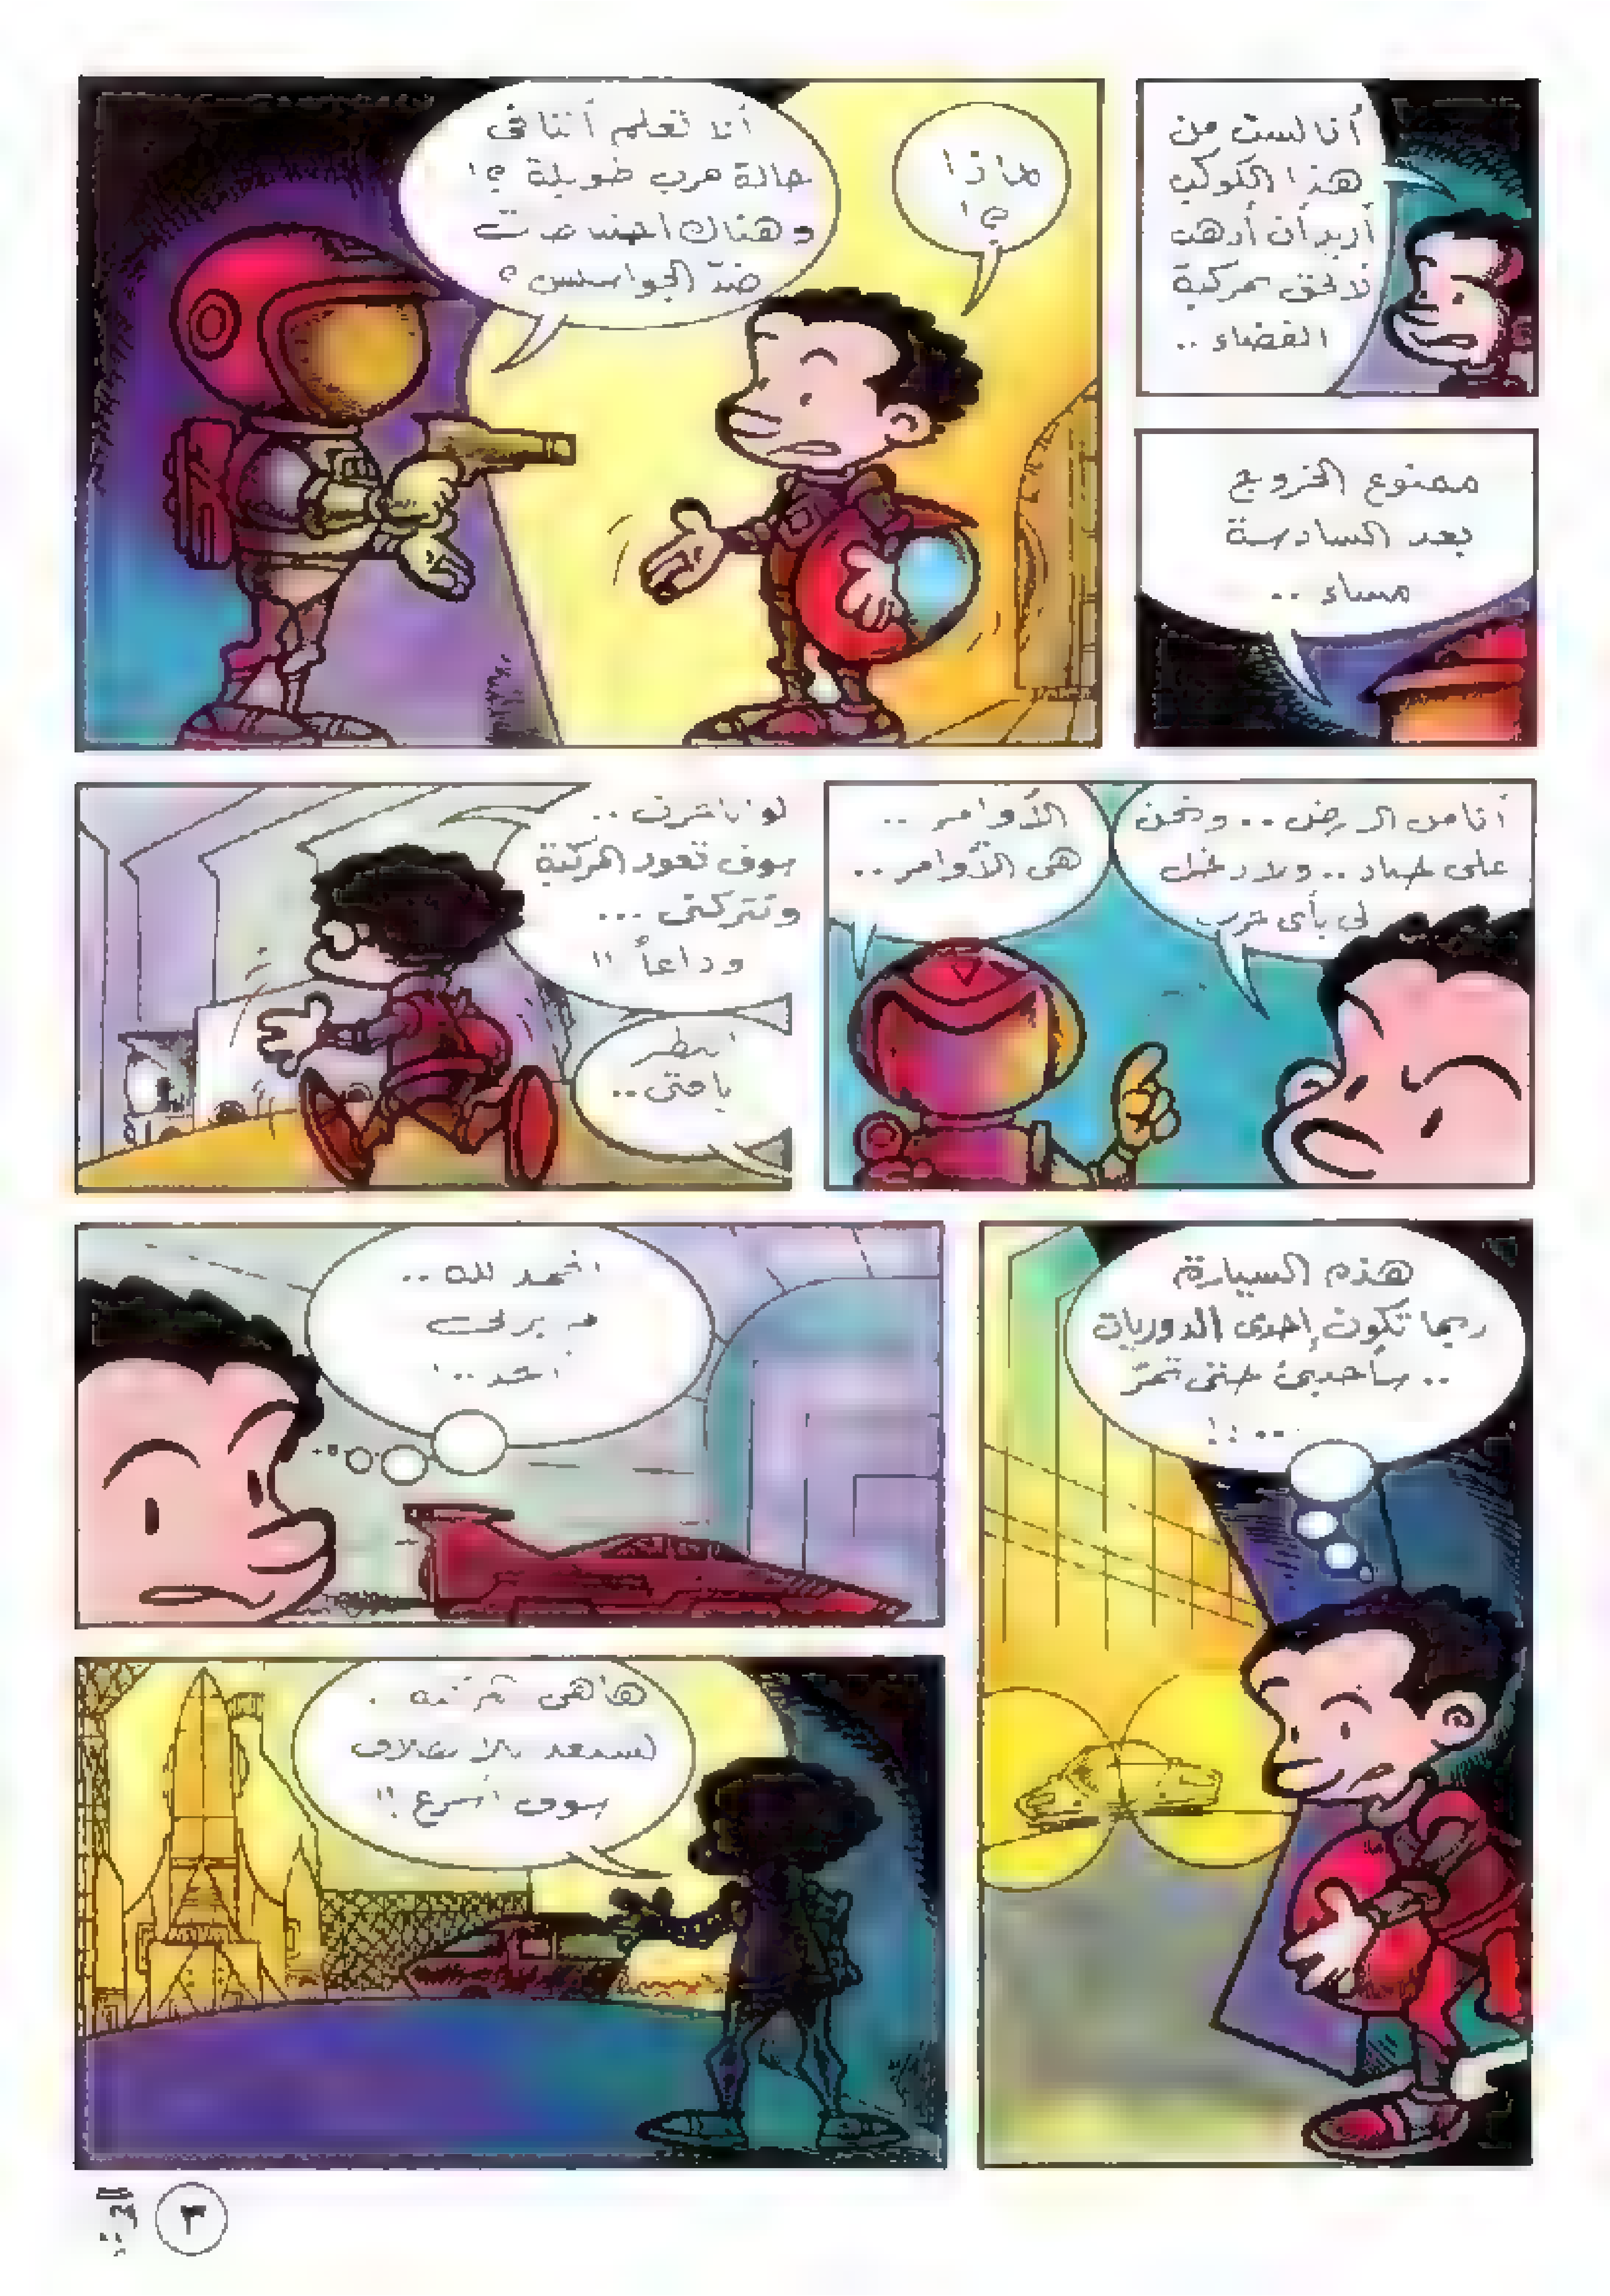 أنا لست من
هذا الكوكب
أريد أن أذهب
لألحق بمركبة
الفضاء ..
ممنوع الخروج
بعد السادسة
مساء ..
ماذا
؟!
ألا تعلم أننا فى
حالة حرب طويلة ؟!
وهناك
ضدّ الجواسيس ؟
أنا من الأرض .. ونحن
على حياد .. ولا دخل
لى بأى حرب
الأوامر ..
هى الأوامر ..
لو تأخرت ..
سوف تعود المركبة
وتتركنى ...
وداعاً !!
انتظر
يا فتى ..
هذه السيارة
ربما تكون إحدى الدوريات
.. سأختبئ حتى تمرّ
..!!
الحمد لله ..
لم يرنى
أحد ..!
هاهى المركبة .
تستعد للانطلاق
سوف أسرع !!
٣